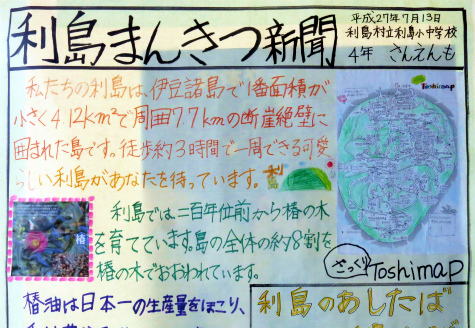 利島まんきつ新聞
平成27年7月13日
利島村立利島小中学校
4年 さんえんも
私たちの利島は、伊豆諸島で1番面積が
小さく4.12km²で周囲7.7kmの断崖絶壁に
囲まれた島です。徒歩約3時間で一周できる可愛
らしい利島があなたを待っています。
利島
Toshimap
利島では二百年位前から椿の木
を育てています。島の全体の約8割を
椿の木でおおわれています。
椿
ざっくり
Toshimap
椿油は日本一の生産量をほこり、
利島のあしたば